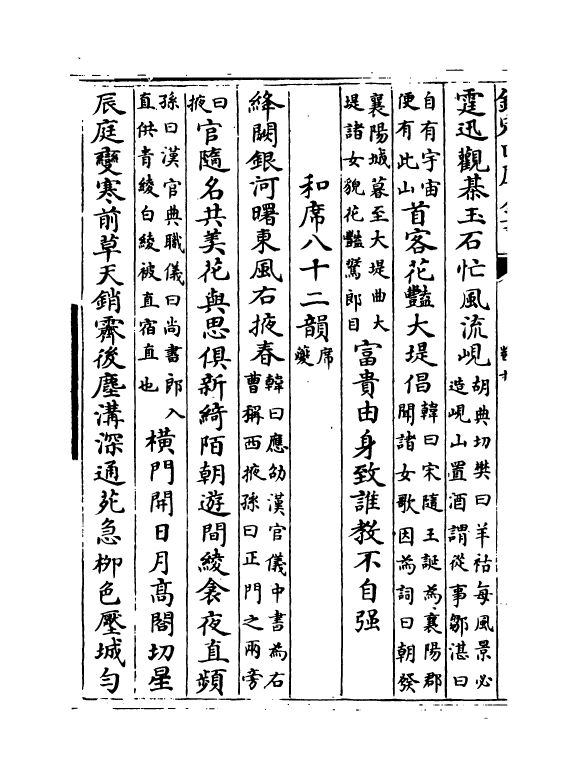 霆迅觀碁玉石忙風流峴胡典切樊曰羊祜每風景必造峴山置酒謂從事鄒湛曰
自有宇宙便有此山首客花豔大堤倡韓曰宋隨王誕為襄陽郡聞諸女歌因為詞曰朝發
襄陽城暮至大堤曲大堤諸女貌花豔驚郎目富貴由身致誰教不自强
和席八十二韻席夔
絳闕銀河曙東風右掖春韓曰應劭漢官儀中書為右曹稱西掖孫曰正門之兩旁
曰掖官隨名共美花與思俱新綺陌朝遊間綾衾夜直頻
孫曰漢官典職儀曰尚書郎入直供青綾白綾被直宿直也橫門開日月高閣切星
辰庭變寒前草天銷霽後塵溝深通苑急柳色壓城勻